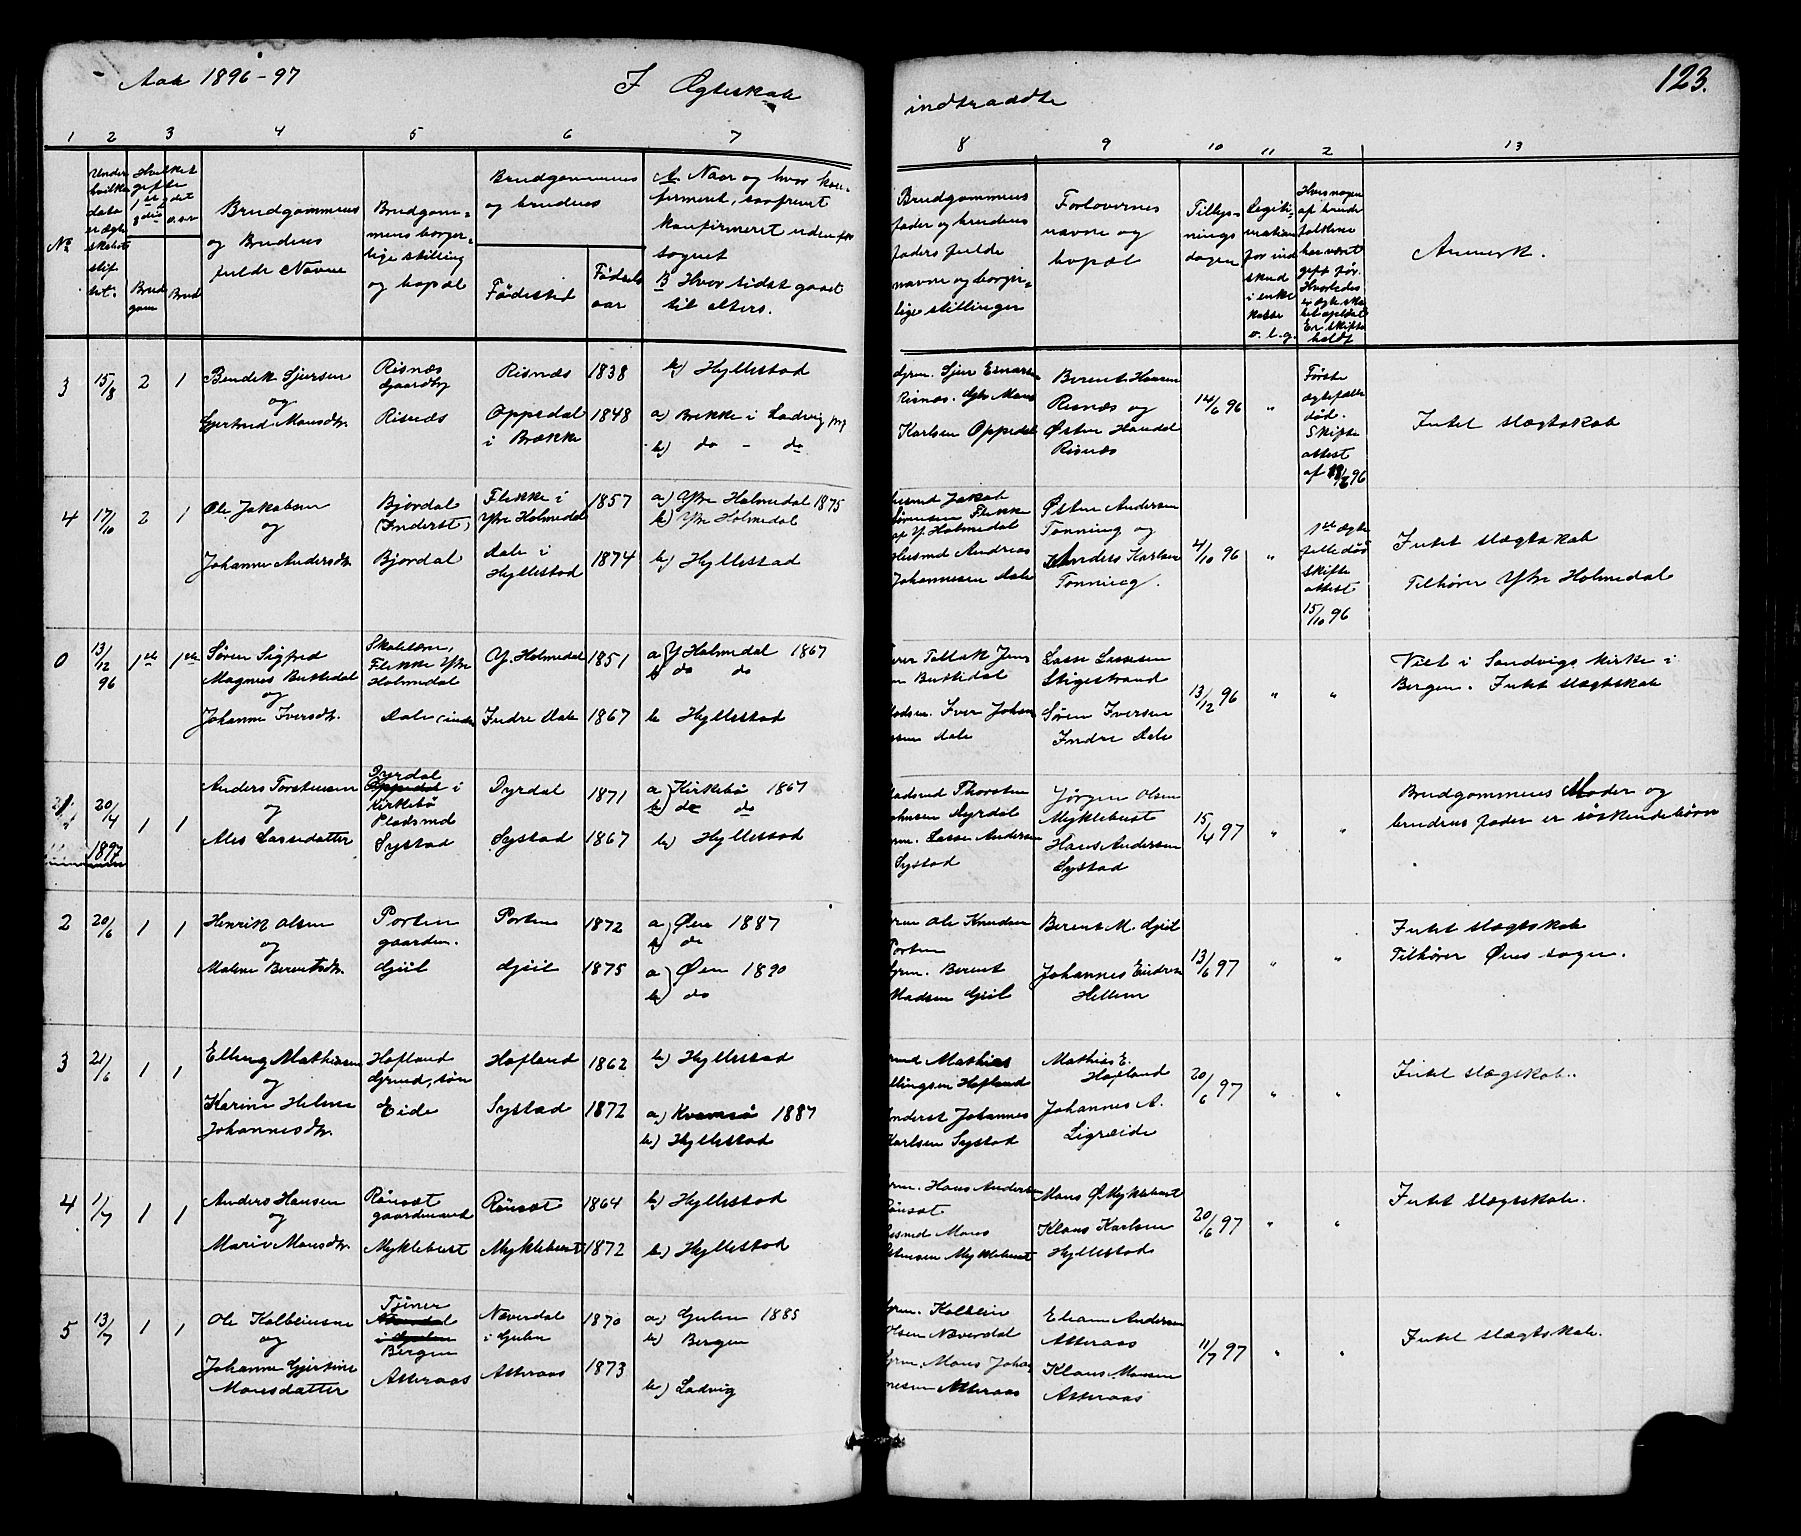 Aar 1896-97
I Ægteskab
indtraadte
123.
1 2 3 4 5 6 7
8 9 10 11 2 13
No
Under hvilken dato ægteskabet stiftet.
Hvilket gifte 1ste det o.s.v.
Brudgom
Brud
Brudgommens
og Brudens
fulde Navne
Brudgom-
mens borger-
lige stilling
og bopæl
Brudgommens
og brudens
Fødested
Fødsels
aar
A. Naar og hvor kon-
firmeret, saafremt
konfirmeret udenfor
sognet
B Hvor sidst gaaet
til alters.
Brudgommens
fader og brudens
faders fulde
navne og borger-
lige stillinger
Forlovernes
navne og
bopæl
Tillys-
nings
dagen
Legiti-
mation
for ind
skud
i enke
kasse
o. l. g.
Hvis nogen
af brude
folkene
har været
gift før.
Hvorledes
er ægteska
bet opløst
Er skifte
holdt
Anmerk.
3 15/8 2 1
Bendik Sjursen
og
Gjertrud Monsdtr.
Risnæs
Gaardbr
Risnæs
Risnæs 1838
Oppedal 1848
i Brekke
b) Hyllestad
a) Brekke i Ladvig prg
b) do - do
Grm. Sjur Einarsen
Risnæs. Gbr Mons
Karlsen Oppedal
Berent Hansen
Risnæs og
Østen Handal
Risnæs
14/6 96
"
Første
ægtefælle
død.
Skifte
attest
af 19/6 96
Intet slægtskab
4 17/10 2 1
Ole Jakobsen
og
Johanne Andersdtr.
Bjordal
(Inderst)
Bjordal
Flekke i 1857
Ytre Holmedal
Aale i 1874
Hyllestad
a) Ytre Holmedal 1875
b) Ytre Holmedal
b) Hyllestad
Husmd Jakob
Sørensen Flekke
af Y Holmedal
Husmd Andreas
Johannesen Aale
Østen Andersen
Tonning og
Anders Karlsen
Tonning.
4/10 96
"
1ste ægte
felle død
skifte
attest
15/10 96
Intet slægtskab
Tilhører Ytre Holmedal
0 13/12 96 1ste 1ste
Søren Sigfred
Magnus Buttedal
og
Johanne Iversdtr.
Skolelærer,
Flekke Ytre
Holmedal
Aale (indre
Y. Holmedal 1851
Indre Aale 1867
a) Y Holmedal 1867
b) do do
b Hyllestad
Buttedal
Iver Johan
Aale
Lasse Lassesen
Stigestrand
Søren Iversen
Indre Aale
13/12 96
" "
Viet i Sandvigs kirke i
Bergen. Intet slægtskab
20/4 1897 1 1
Anders Torstensen
og
Ales Larsdatter
Dyrdal
Oppedal i
Kirkebø
Pladsmd
Systad
Dyrdal 1871
Systad 1867
a) Kirkebø 1867
b) do do
b) Hyllestad
Pladsmd Thorsten
Johnsen Dyrdal
Grm. Lasse Andersen
Systad
Jørgen Olsen
Myklebust
Hans Andersen
Systad
15/4 97
" "
Brudgommens Moder og
brudens fader er søskendebørn
2 20/6 1 1
Henrik Olsen
og
Malene Berentsdtr.
Porten
gaardm.
Gjeil
Porten 1872
Gjeil 1875
a) Øen 1887
b) do
a) Øen 1890
b) do
Grm Ole Knudsen
Porten
Grm. Berent
Madsen Gjeil
Berent M. Gjeil
Johannes Endresen
Hellem
13/6 97
" "
Intet slægtskab
Tilhører Øens sogn.
3 21/6 1 1
Elling Mathiasen
og
Karine Helene
Johannesdtr.
Hofland
Grmd, søn
Eide
Hofland 1862
Systad 1872
b) Hyllestad
a) Kvamsø 1887
b) Hyllestad
Mathias
Ellingsen Hofland
Inderst Johannes
Karlsen Systad
Mathias E.
Hofland
Johannes A.
Ligreide
20/6 97
" "
Intet slægskab.
4 1/7 1 1
Anders Hansen
og
Marie Monsdtr.
Rønset
gaardmand
Myklebust
Rønset 1864
Myklebust 1872
b) Hyllestad
b) Hyllestad
Grm. Hans Andersen
Rønset
Husmd Mons
Østensen Myklebust
Mons Ø. Myklebust
Klaus Karlsen
Hyllestad
20/6 97
" "
Intet slægtskab.
5 13/7 1 1
Ole Kolbeinsen
og
Johanne Gjertine
Monsdatter
Tjener
Næverdal
i Gulen
Bergen
Atteraas
Næverdal 1870
i Gulen
Atteraas 1873
a) Gulen 1885
b) Bergen
b) Ladvig
Grm. Kolbein
Olsen Næverdal
Grm. Mons Johan-
nesen Atteraas
Andersen
Atteraas
Klaus Monsen
Atteraas
11/7 97
" "
Intet slægtskab.